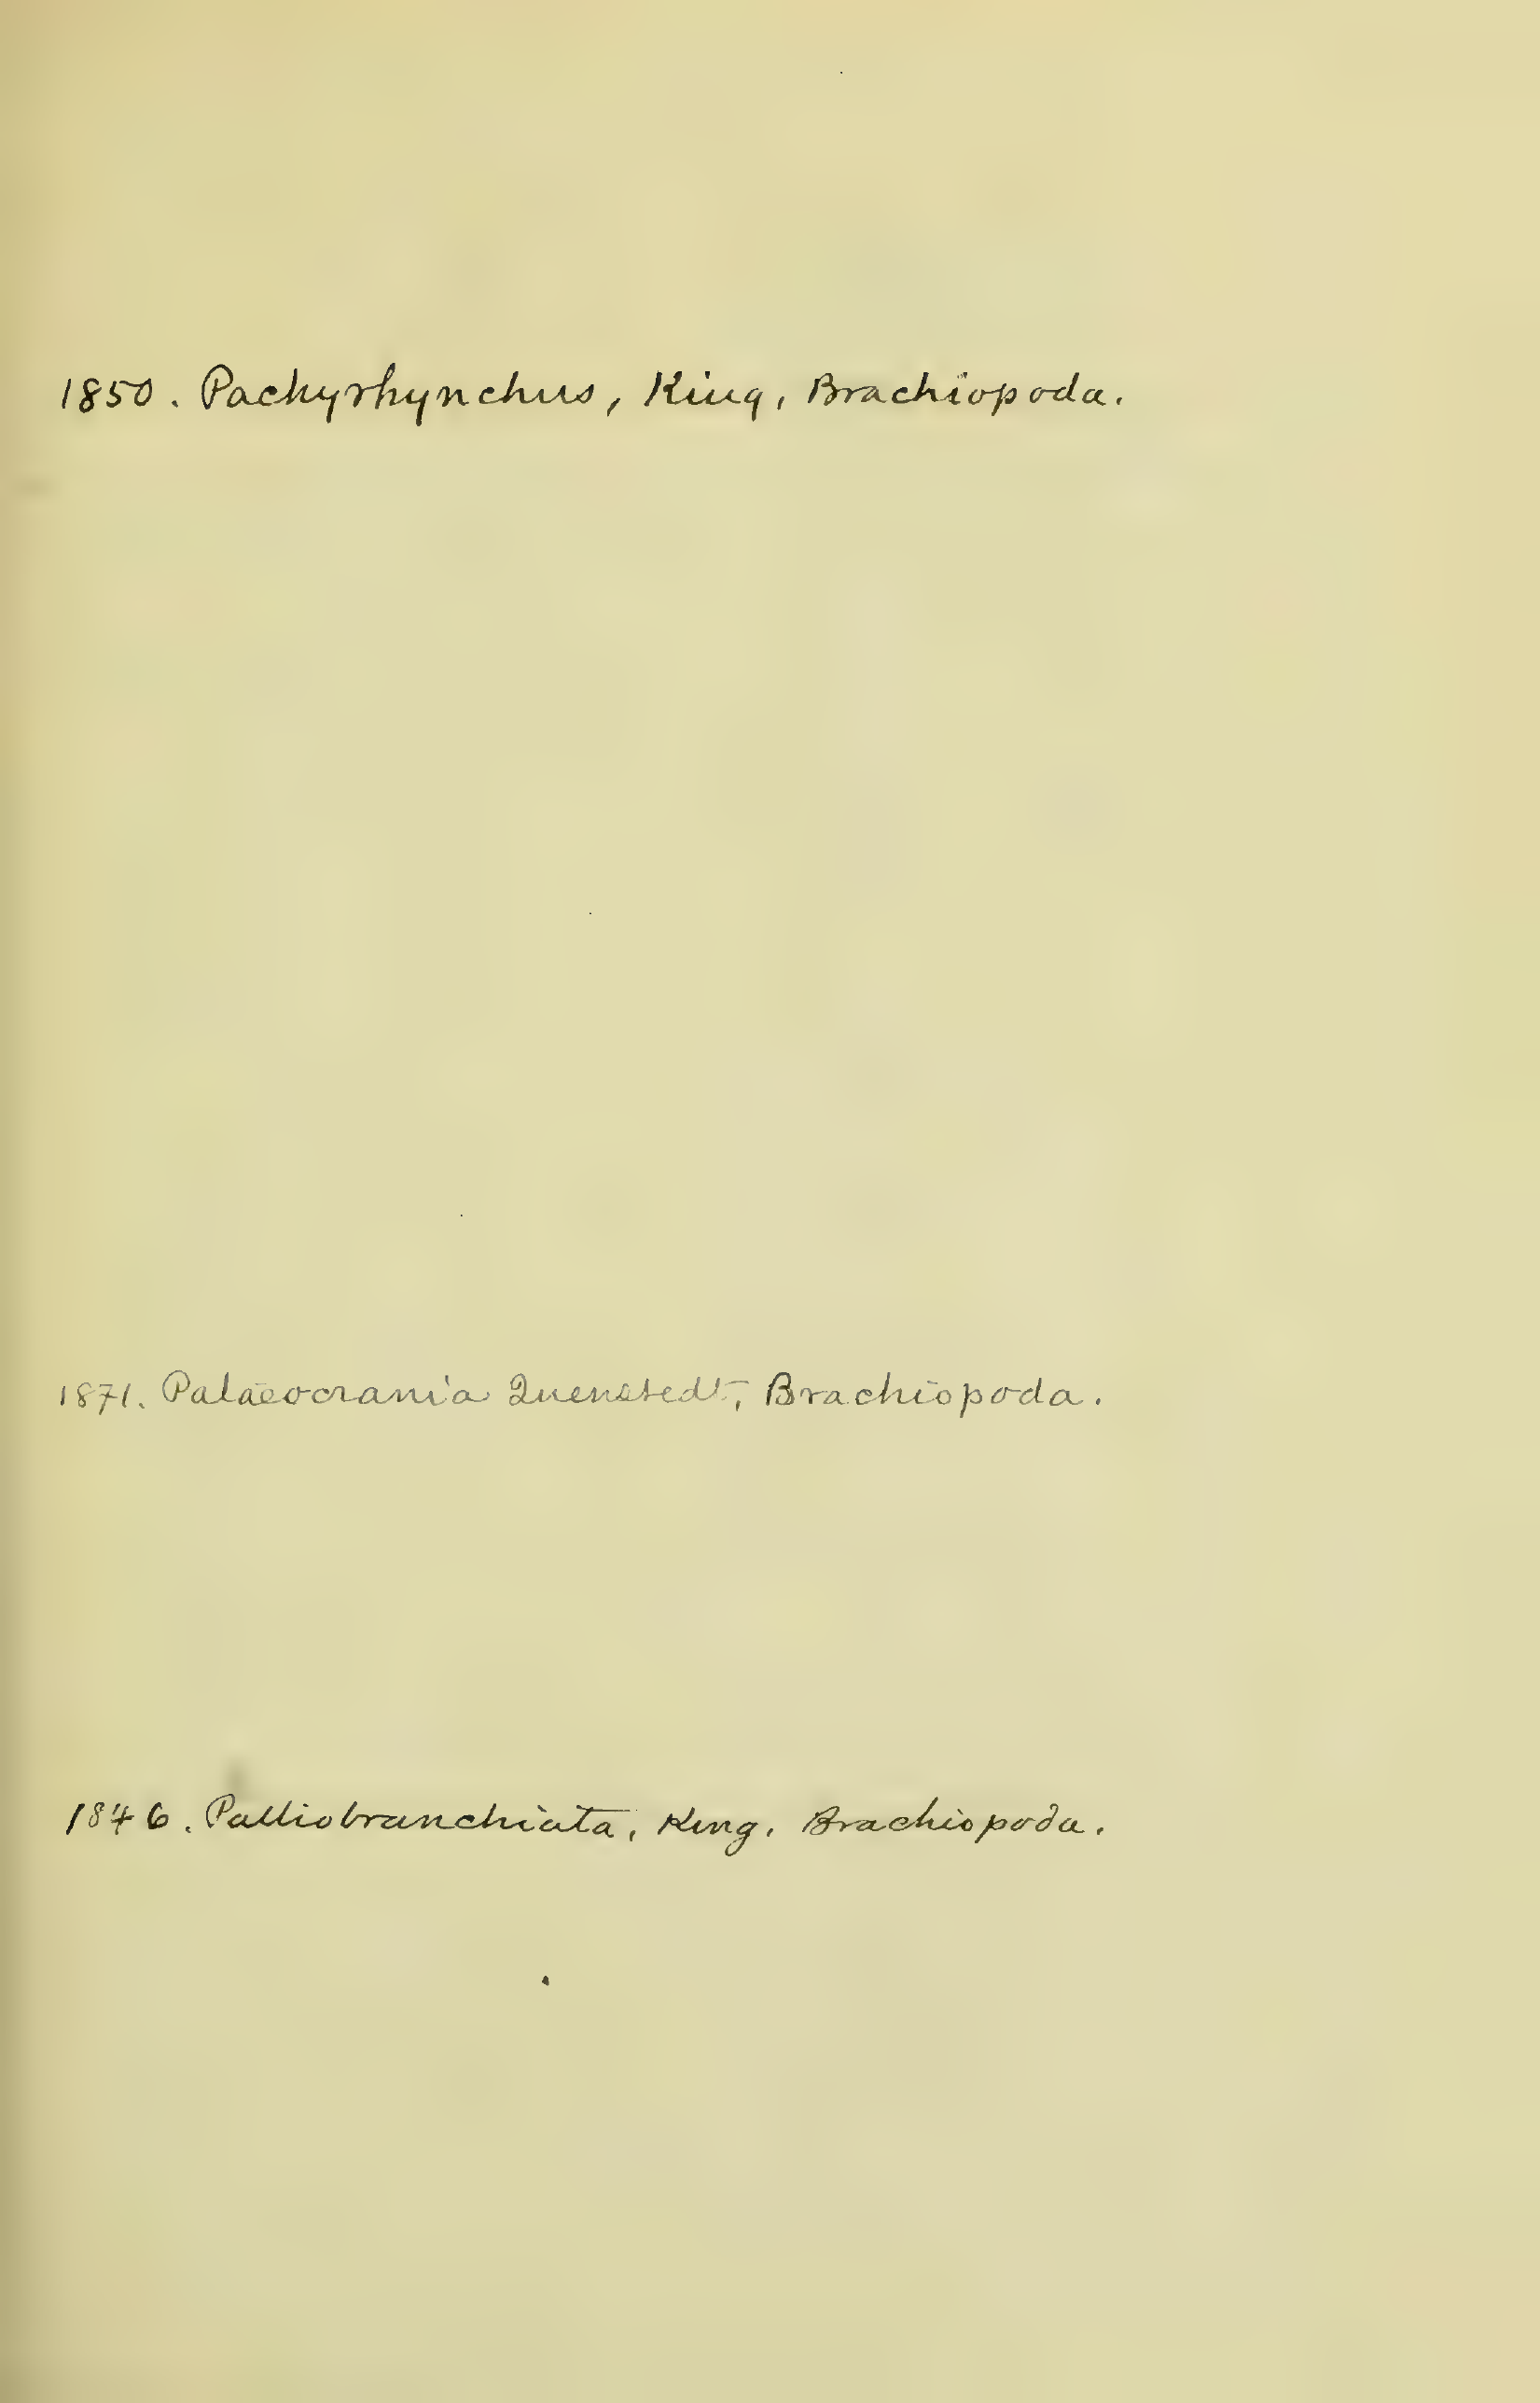 1850. Pachyrhynchus, King, Brachiopoda.
1871. Palaeocrania Quenstedt, Brachiopoda.
1846. Palliobranchiata, King, Brachiopoda.